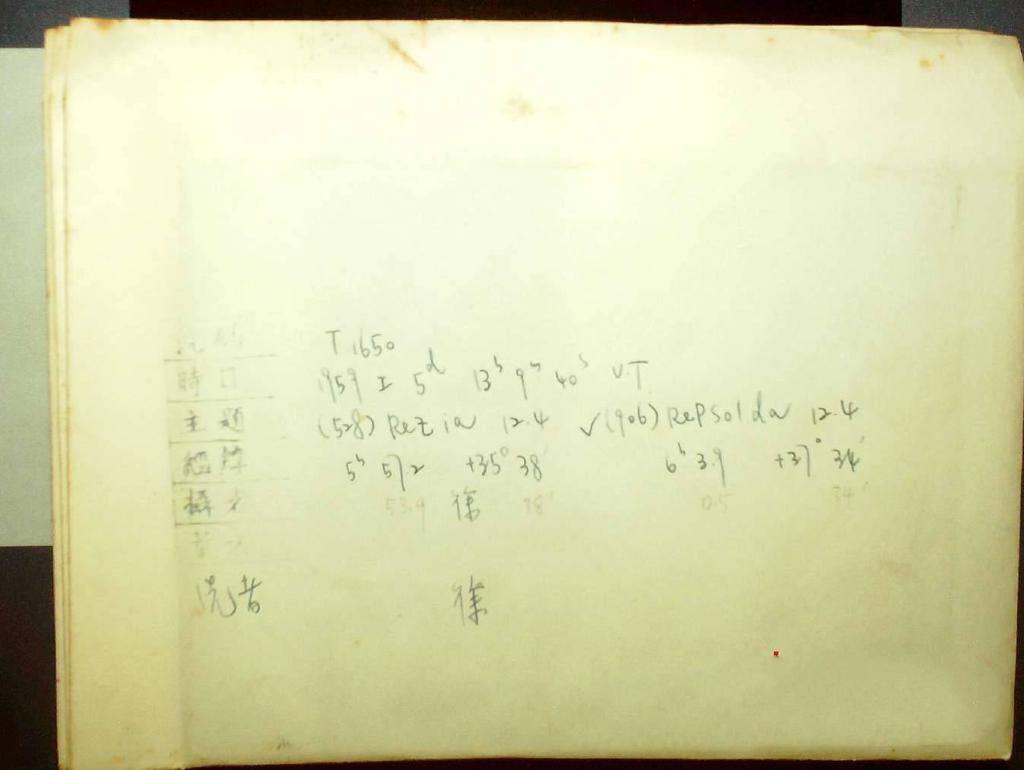 T 1650
時日 1959 I 5ᵈ 13ʰ 9ᵐ 40ˢ U.T.
主題 (528) Rezia 12.4 ✓(906) Repsolda 12.4
經緯 5ʰ 57.2 +35° 38′ 6ʰ 3.9 +37° 34′
攝者 53.9 徐 38′ 0.5 34′
洗者 徐